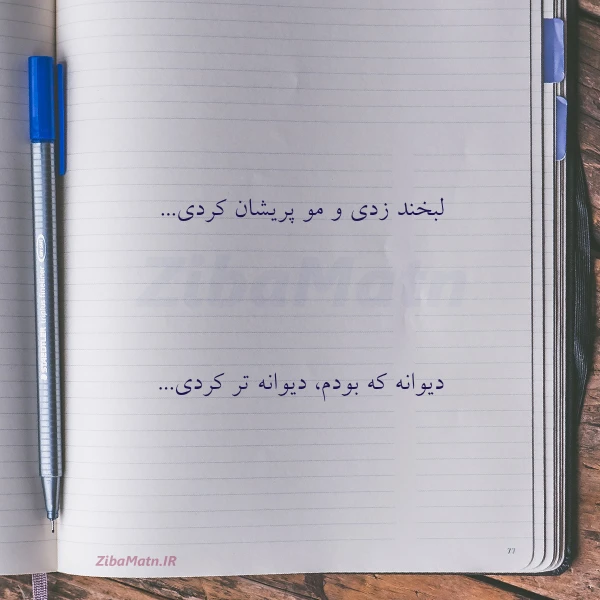 لبخند زدی و مو پریشان کردی...
ZibaMatn
دیوانه که بودم، دیوانه تر کردی...
ZibaMatn.IR